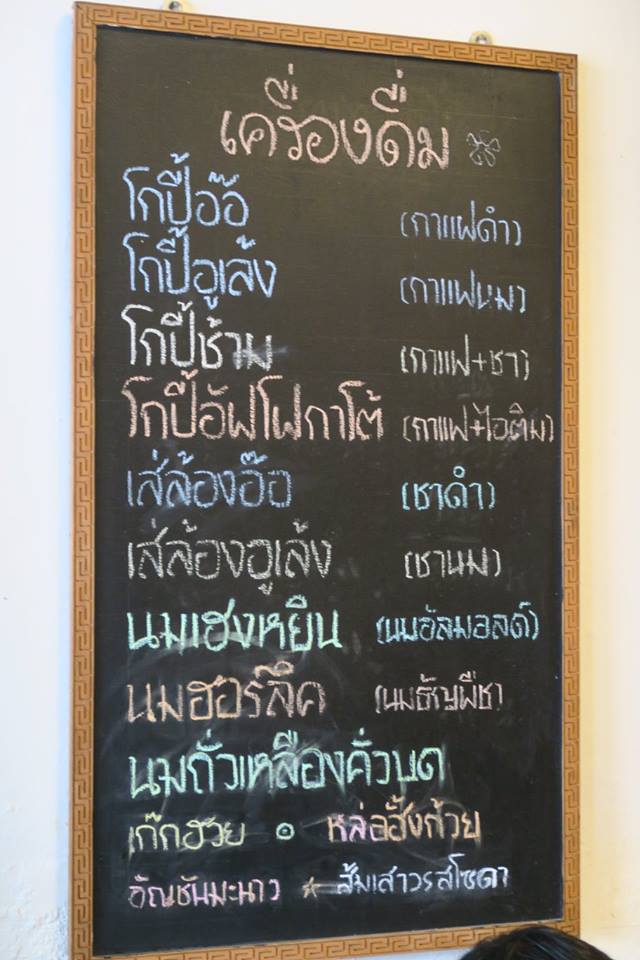 เครื่องดื่ม
โกปี้อ๊อ (กาแฟดำ)
โกปี้อูเล้ง (กาแฟนม)
โกปี้ช้าม (กาแฟ+ชา)
โกปี้อัฟโฟกาโต้ (กาแฟ+ไอติม)
เส่ล้องอ๊อ (ชาดำ)
เส่ล้องอูเล้ง (ชานม)
นมเฮงหยิน (นมอัลมอลด์)
นมฮอร์ลิค (นมธัญพืช)
นมถั่วเหลืองคั่วบด
เก๊กฮวย ๐ หล่อฮั้งก้วย
อัญชันมะนาว * ส้มเสาวรสโซดา